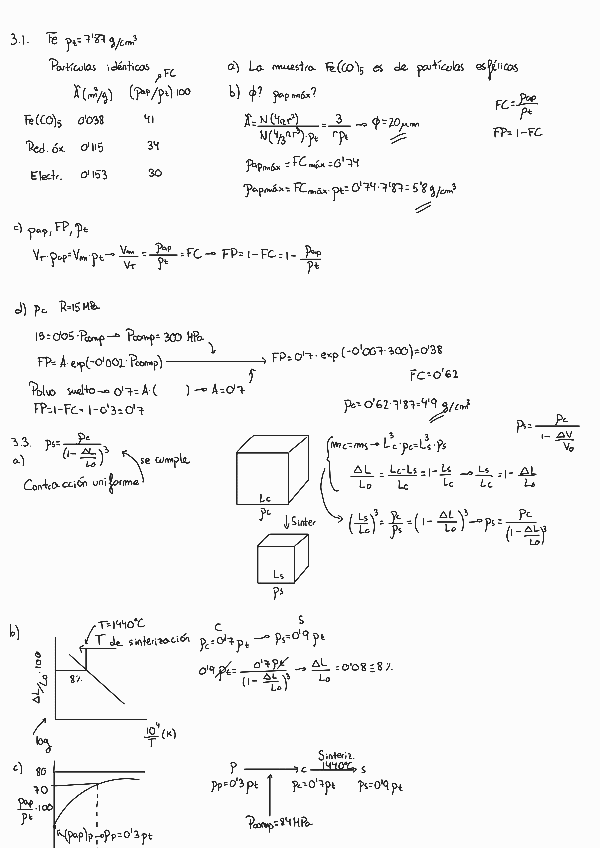 3.1. Fe ρt=7'87 g/cm³
Partículas idénticas
FC
Â(m²/g) (ρap/ρt)100
Fe(CO)5 0'038 41
Red. óx. 0'115 34
Electr. 0'153 30
a) La muestra Fe(CO)5 es de partículas esféricas
b) ϕ? ρapmáx?
Â = N(4πr²)/N(4/3πr³)·ρt = 3/rρt → ϕ=20μm
FC=ρap/ρt
FP=1-FC
ρapmáx=FCmáx=0'74
ρapmáx=FCmáx·ρt=0'74·7'87=5'8g/cm³
c) ρap, FP, ρt
VT·ρap=Vm·ρt → Vm/VT = ρap/ρt = FC → FP=1-FC=1-ρap/ρt
d) ρc R=15MPa
15=0'05·Pcomp → Pcomp=300 MPa
FP=A·exp(-0'002·Pcomp) → FP=0'7·exp(-0'007·300)=0'38
FC=0'62
Polvo suelto → 0'7=A·( ) → A=0'7
FP=1-FC=1-0'3=0'7
ρc=0'62·7'87=4'9 g/cm³
3.3. ρs=ρc/(1-ΔL/Lo)³
ρs=ρc/(1-ΔV/Vo)
a) se cumple
Contracción uniforme
Lc
ρc
Sinter
Ls
ρs
mc=ms → Lc³·ρc=Ls³·ρs
ΔL/Lo=(Lc-Ls)/Lc=1-Ls/Lc → Ls/Lc=1-ΔL/Lo
(Ls/Lc)³=ρc/ρs=(1-ΔL/Lo)³ → ρs=ρc/(1-ΔL/Lo)³
b) T=1440ºC
T de sinterización
C S
ρc=0'7ρt → ρs=0'9ρt
0'9ρt=0'7ρt/(1-ΔL/Lo)³ → ΔL/Lo=0'08≡8%
ΔL/Lo·100
8%
log
10⁴/T (K)
c) 80
70
ρap/ρt·100
(ρap)p→ρp=0'3ρt
Sinteriz.
P → C 1440ºC → S
ρp=0'3ρt ρc=0'7ρt ρs=0'9ρt
Pcomp=84MPa